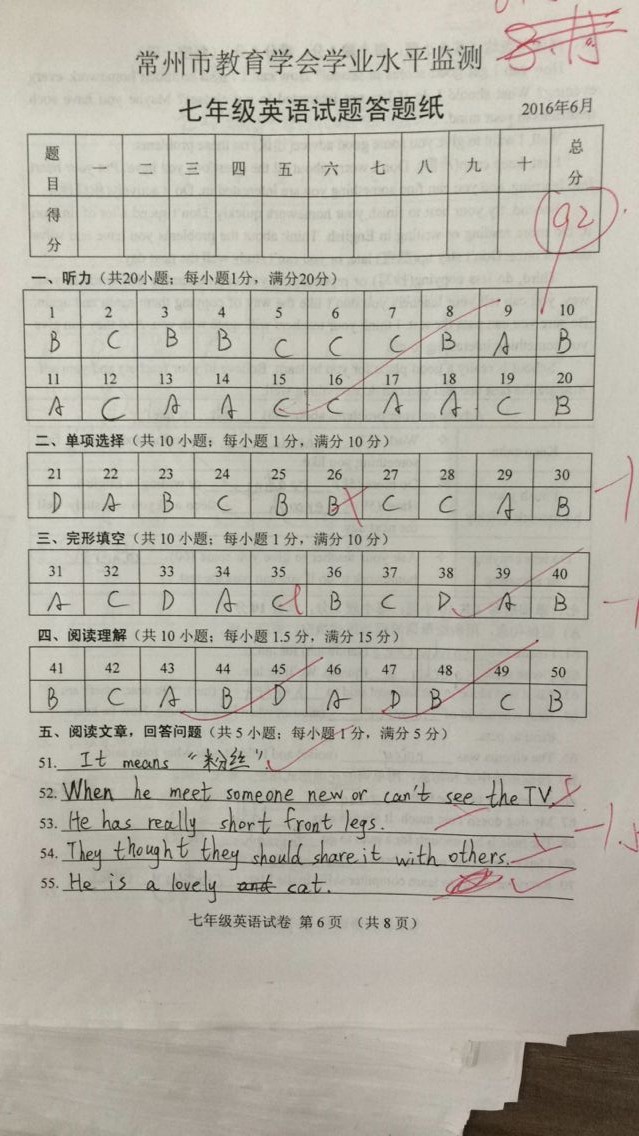 常州市教育学会学业水平监测
七年级英语试题答题纸 2016年6月
题目 一 二 三 四 五 六 七 八 九 十 总分
得分 92
一、听力（共20小题；每小题1分，满分20分）
1 2 3 4 5 6 7 8 9 10
B C B B C C C B A B
11 12 13 14 15 16 17 18 19 20
A C A A C C A A C B
二、单项选择（共 10 小题；每小题 1 分，满分 10 分）
21 22 23 24 25 26 27 28 29 30
D A B C B B C C A B
-1
三、完形填空（共 10 小题；每小题 1 分，满分 10 分）
31 32 33 34 35 36 37 38 39 40
A C D A C B C D A B
-1
四、阅读理解（共 10 小题；每小题 1.5 分，满分 15 分）
41 42 43 44 45 46 47 48 49 50
B C A B D A D B C B
五、阅读文章，回答问题（共 5 小题；每小题 1 分，满分 5 分）
51. It means “粉丝”.
52. When he meet someone new or can't see the TV.
53. He has really short front legs.
54. They thought they should share it with others.
-1.5
55. He is a lovely and cat.
七年级英语试卷 第 6 页 （共 8 页）